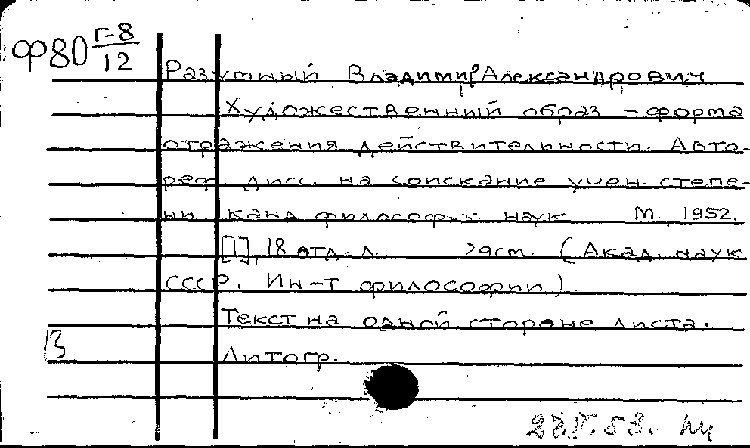 Ф80 Г-8
12
Разумный Владимир Александрович
Художественный образ – форма
отражения действительности. Авто-
реф. дисс. на соискание учен. степе-
ни канд. философ. наук М. 1952.
[1], 18 отд. л. (Акад. наук
СССР. Ин-т философии)
Текст на одной стороне листа.
Литогр.
В